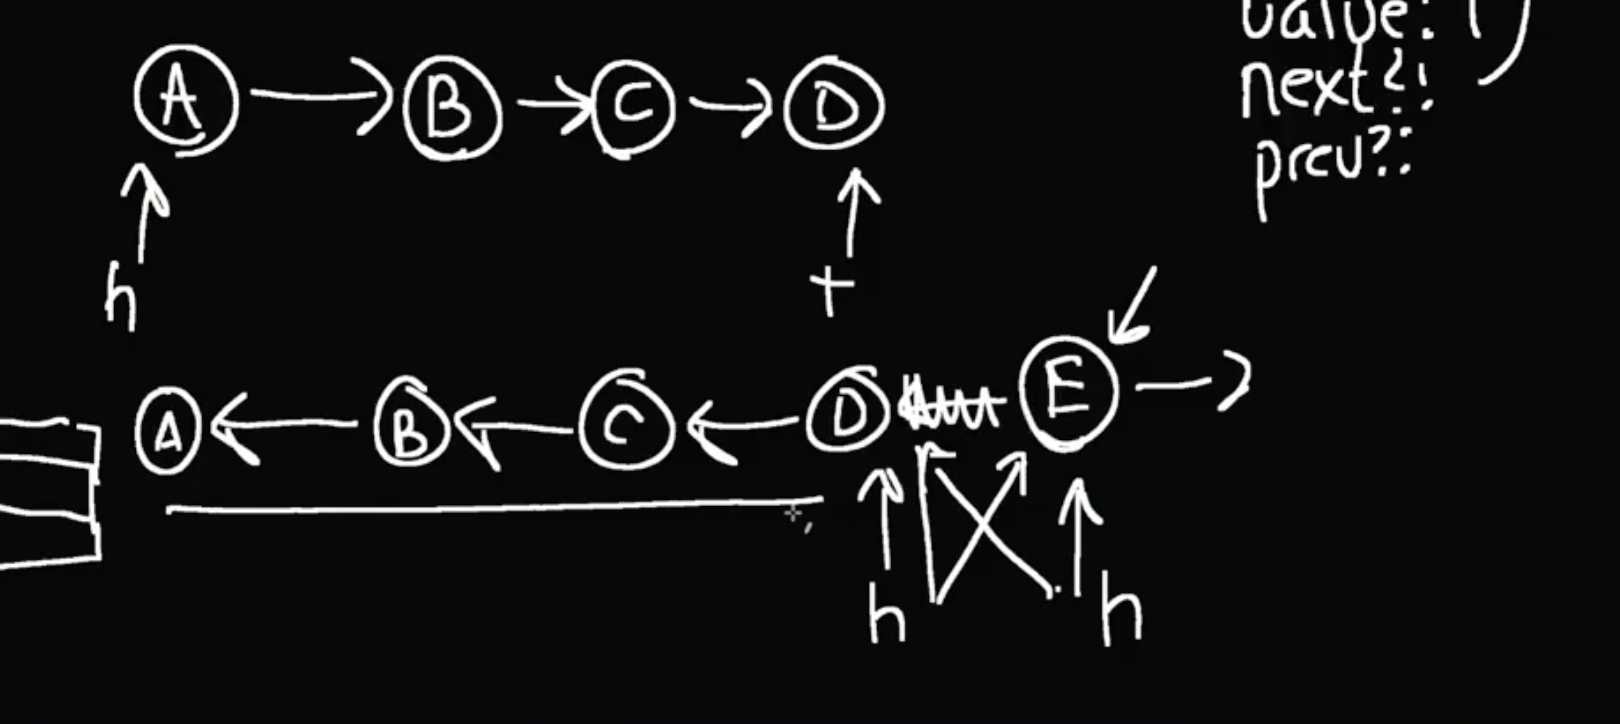 value: T
next?:
prev?:
A B C D
h
t
A B C D E
h h